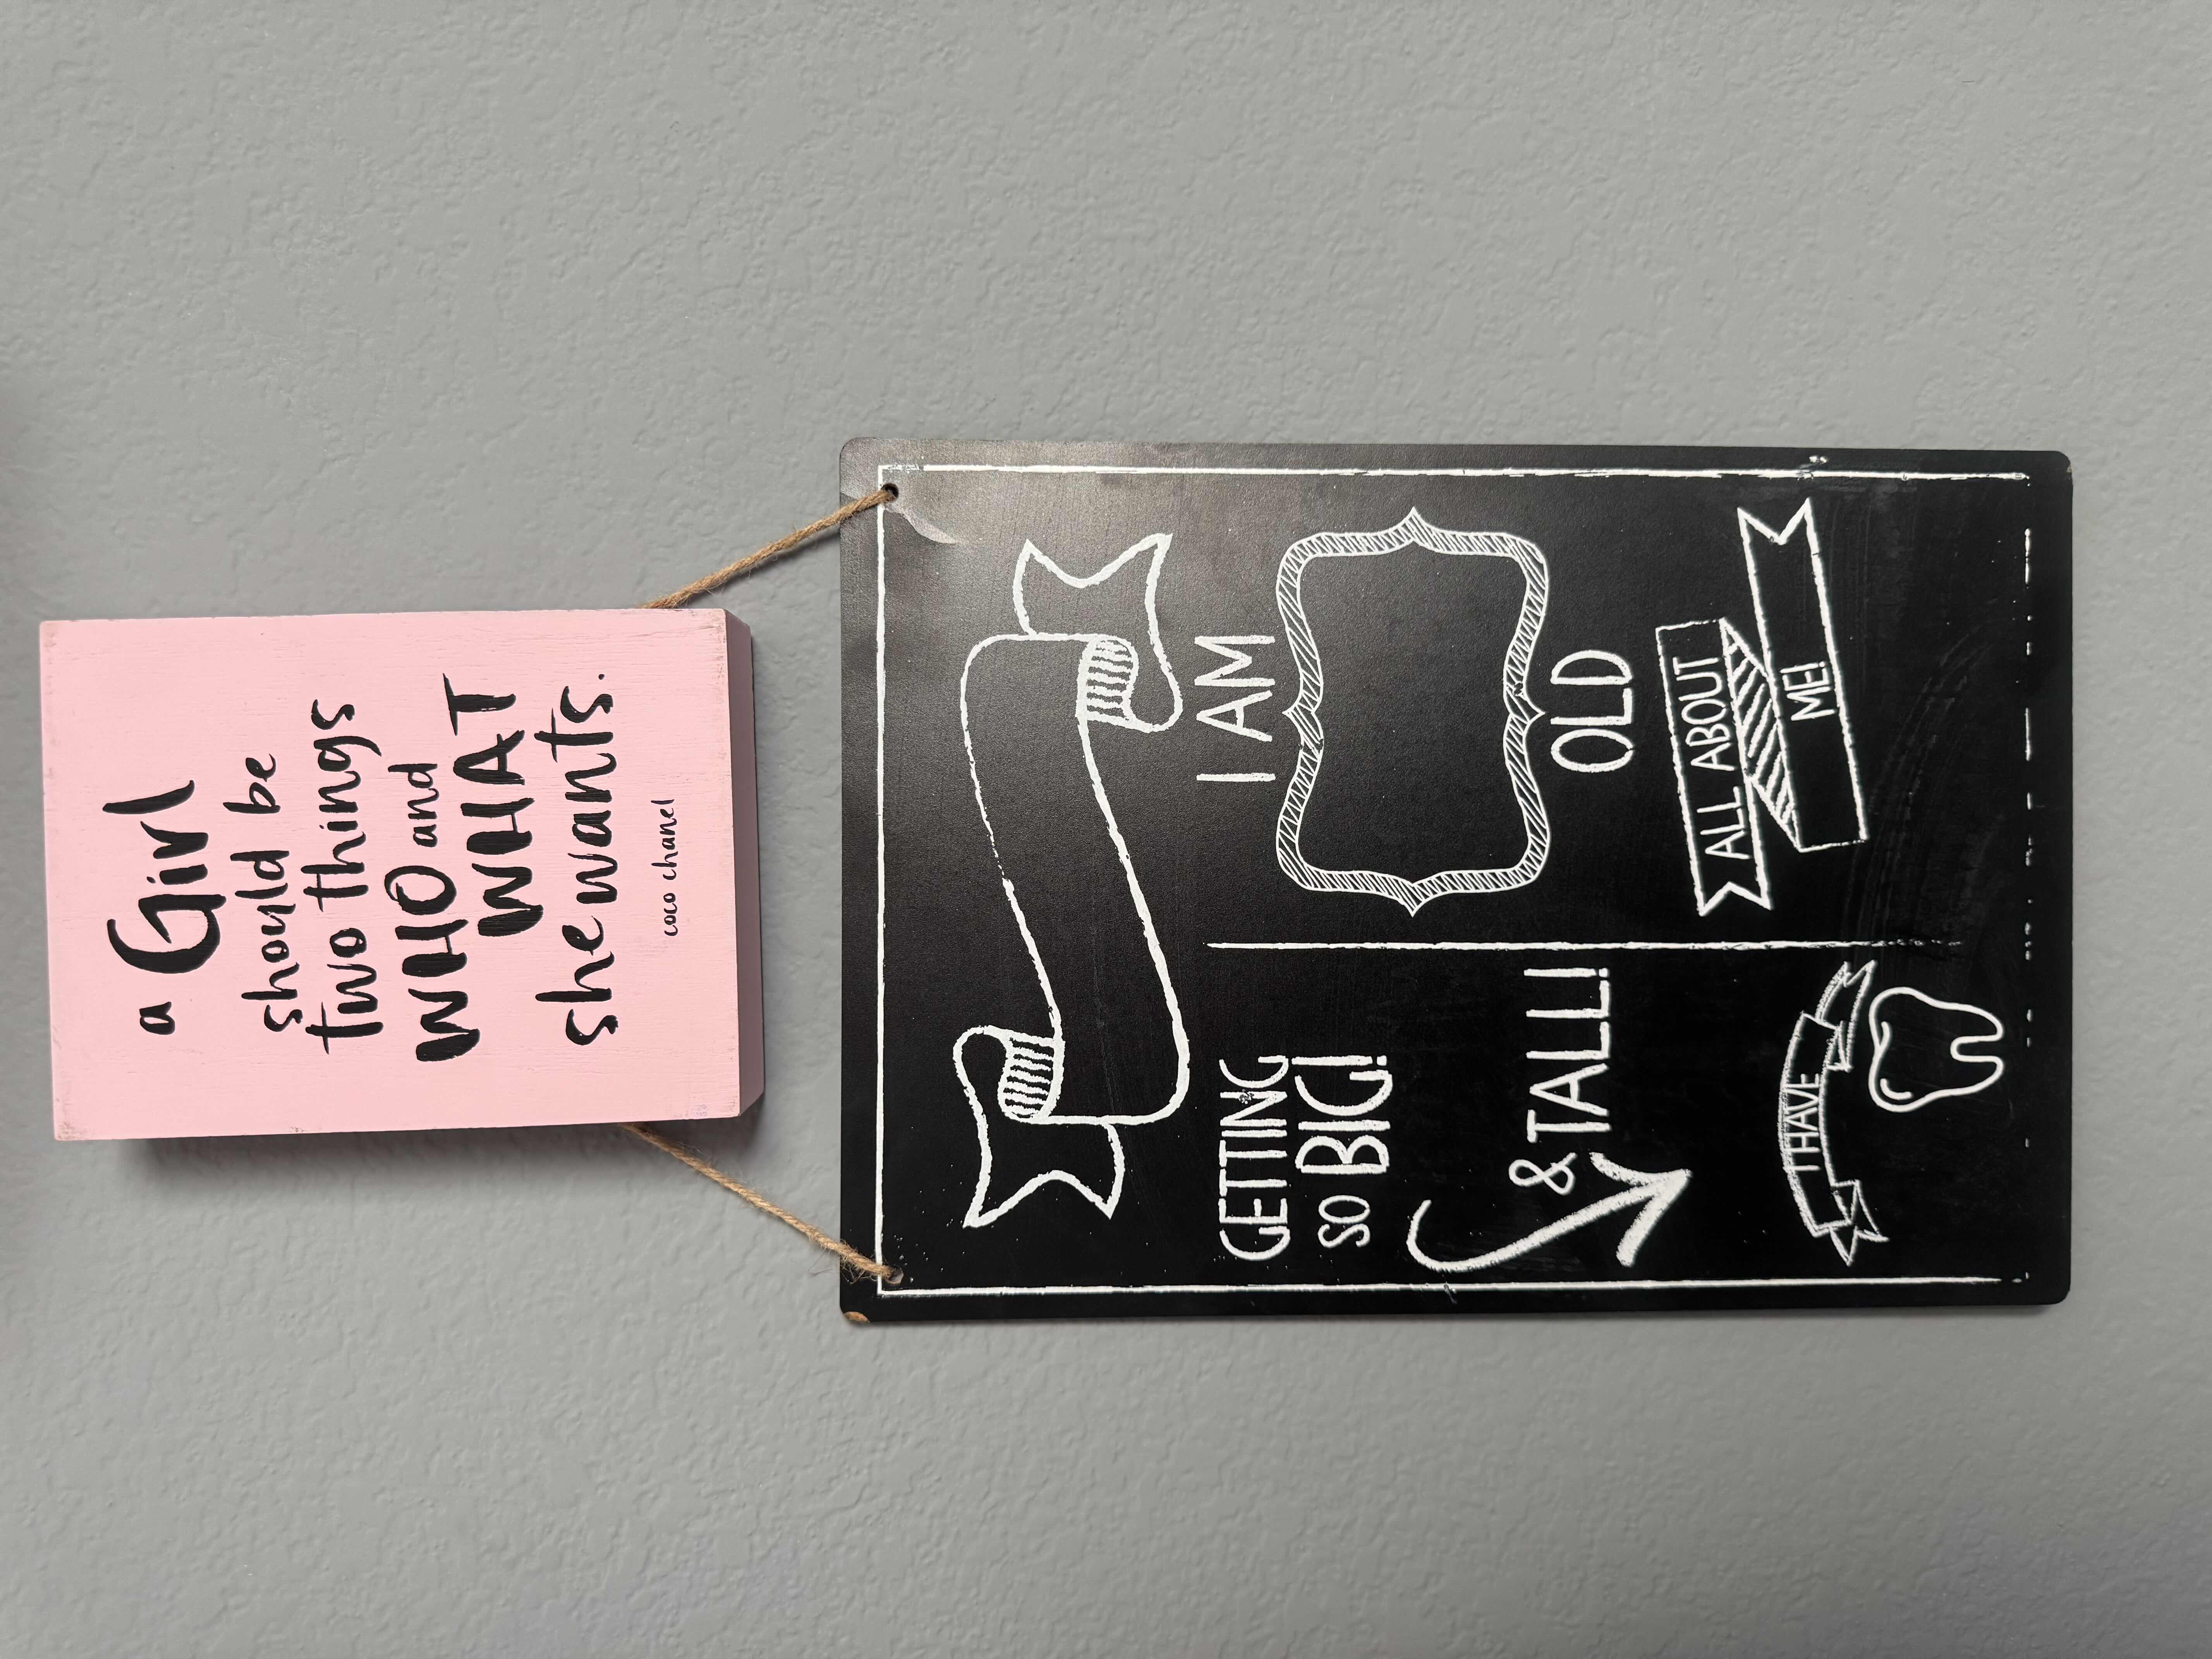 a Girl
should be
two things
WHO and
WHAT
she wants.
coco chanel
GETTING
SO BIG!
& TALL!
I HAVE
I AM
OLD
ALL ABOUT
ME!